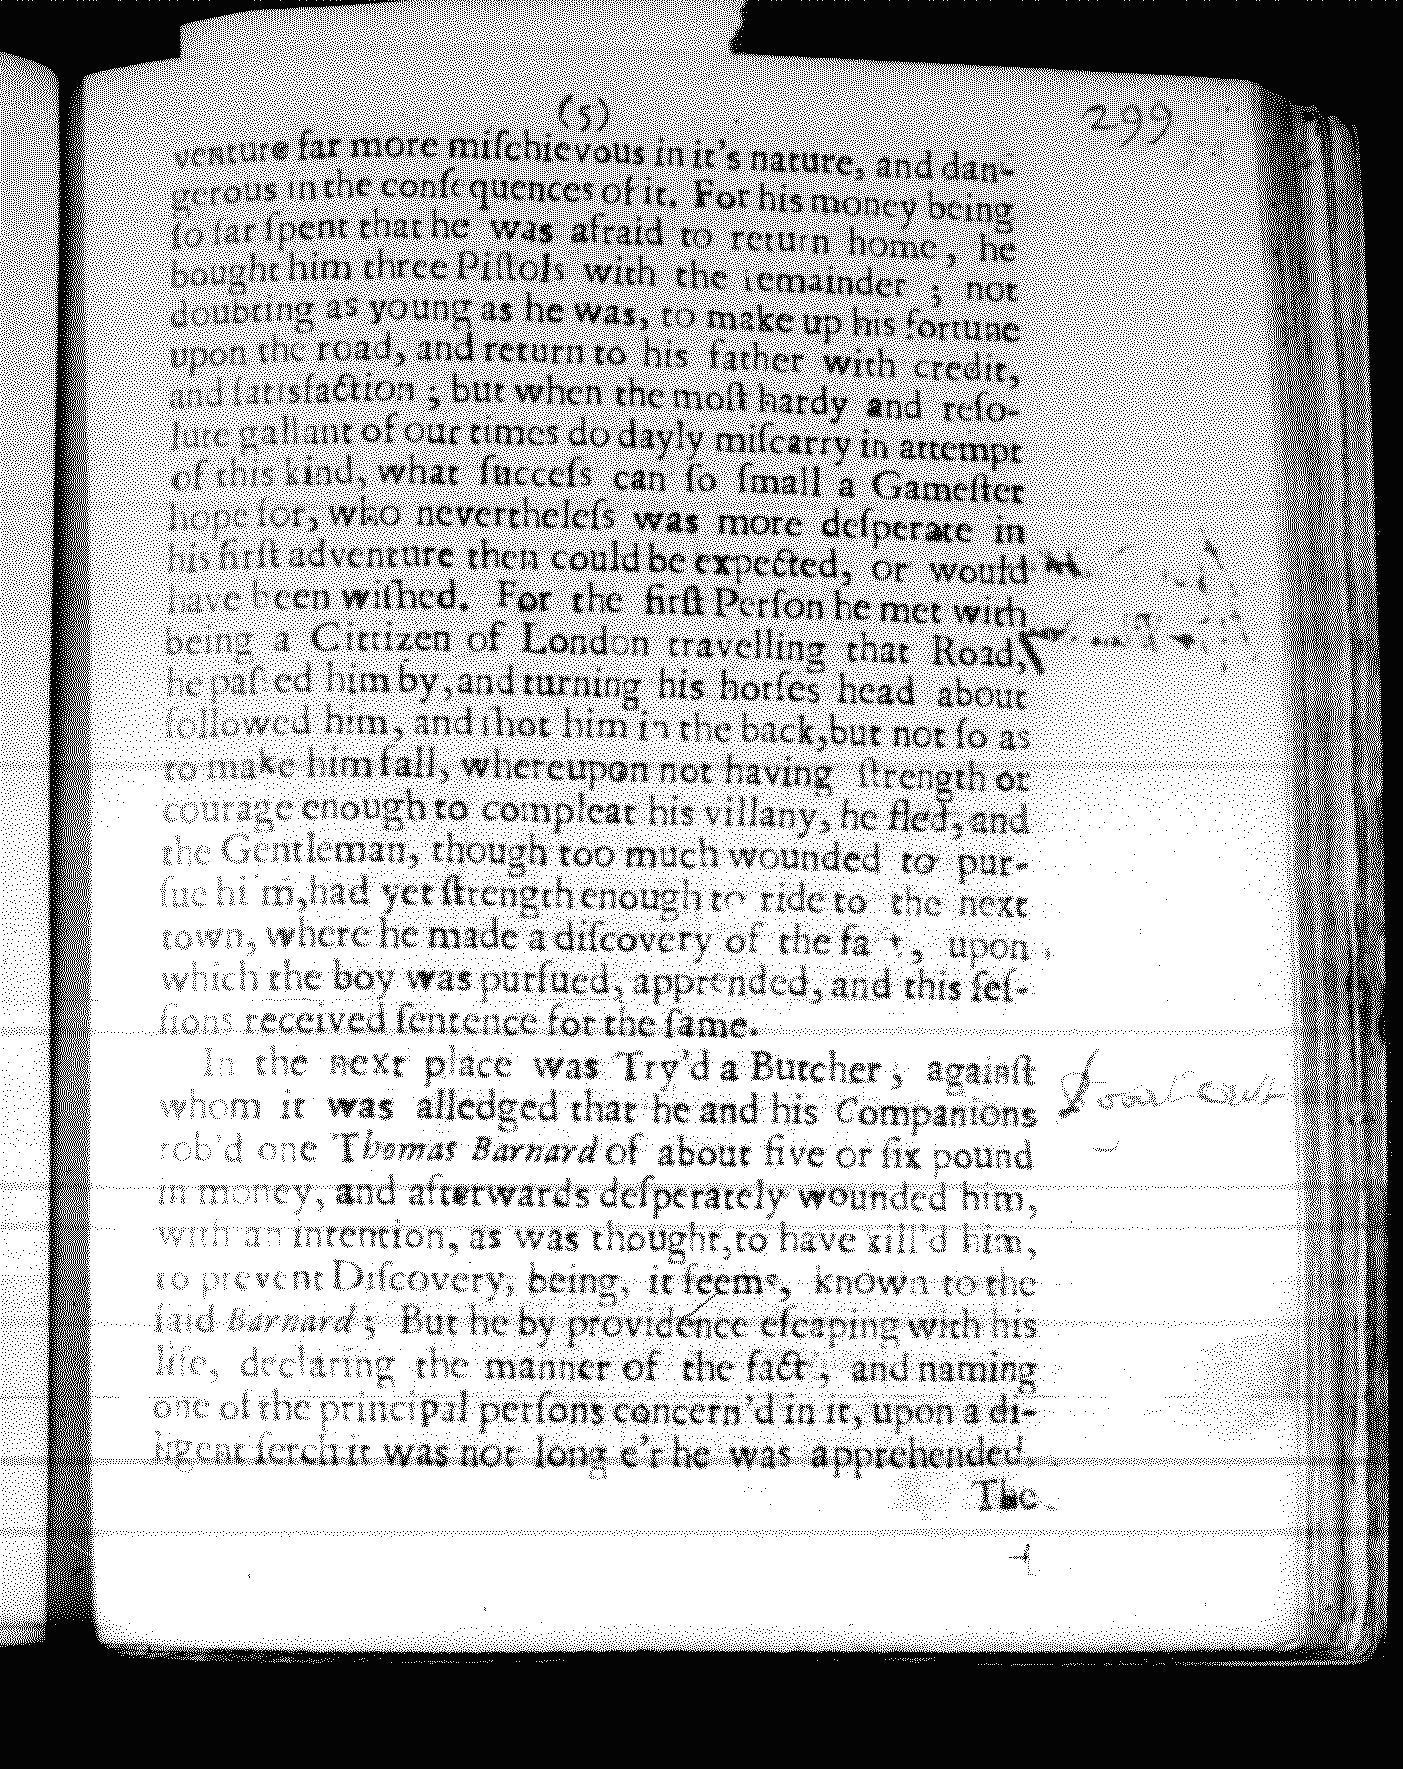 (5) 299
venture far more miſchievous in it's nature, and dan-
gerous in the conſequences of it. For his money being
ſo far ſpent that he was afraid to return home, he
bought him three Piſtols with the remainder ; not
doubting as young as he was, to make up his fortune
upon the road, and return to his father with credit,
and ſatisfaction ; but when the moſt hardy and reſo-
lute gallant of our times do dayly miſcarry in attempt
of this kind, what ſucceſs can ſo ſmall a Gameſter
hope for, who nevertheleſs was more deſperate in
his firſt adventure then could be expected, or would
have been wiſhed. For the firſt Perſon he met with
being a Cittizen of London travelling that Road,
he paſ ed him by, and turning his horſes head about
followed him, and ſhot him in the back, but not ſo as
to make him fall, whereupon not having ſtrength or
courage enough to compleat his villany, he fled, and
the Gentleman, though too much wounded to pur-
ſue hi m, had yet ſtrength enough to ride to the next
town, where he made a diſcovery of the fa t, upon
which the boy was purſued, apprended, and this ſeſ-
ſions received ſentence for the ſame.
In the next place was Try'd a Butcher ; againſt
whom it was alledged that he and his Companions
rob'd one Thomas Barnard of about five or ſix pound
in money, and afterwards deſperately wounded him,
with an intention, as was thought, to have kill'd him,
to prevent Diſcovery, being, it ſeems, known to the
ſaid Barnard ; But he by providence eſcaping with his
life, declaring the manner of the fact, and naming
one of the principal perſons concern'd in it, upon a di-
ligent ſerch it was not long e'r he was apprehended.
The